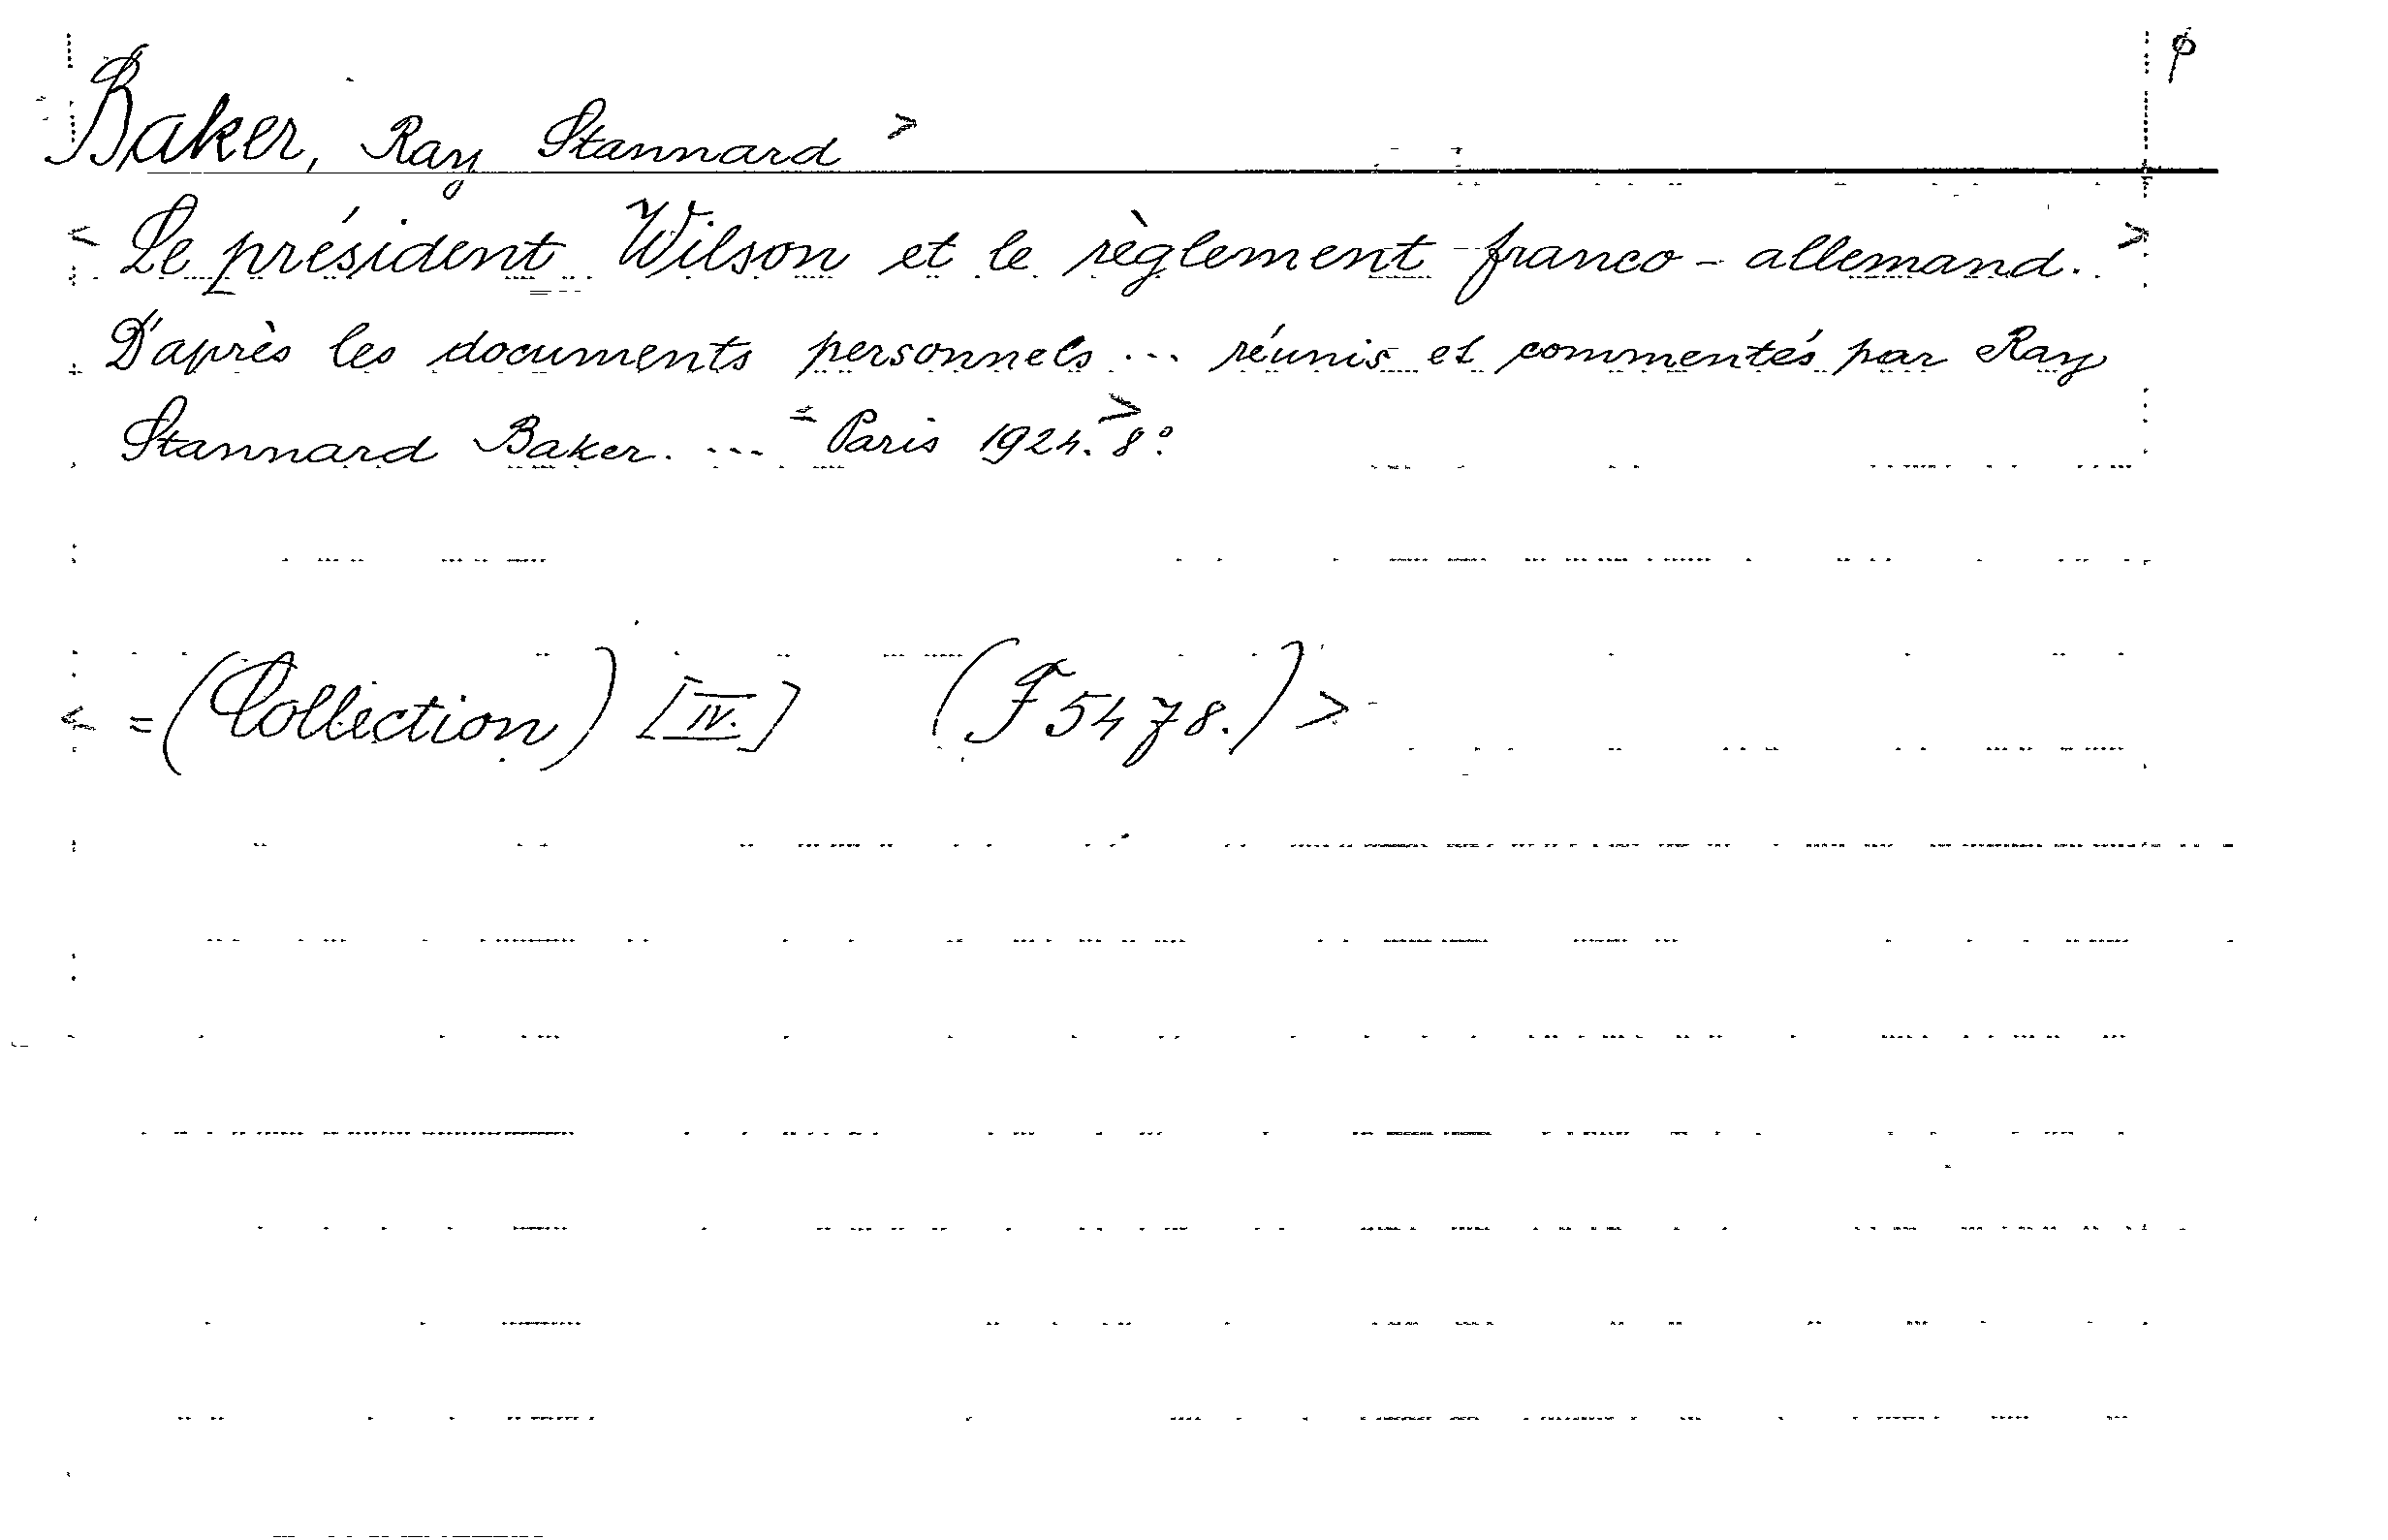 Baker, Ray Stannard >
< Le président Wilson et le règlement franco-allemand. >
D'après les documents personnels ... réunis et commentés par Ray
Stannard Baker. ... = Paris 1924. > 8°.
< = (Collection) [IV.] (F 5478.) >